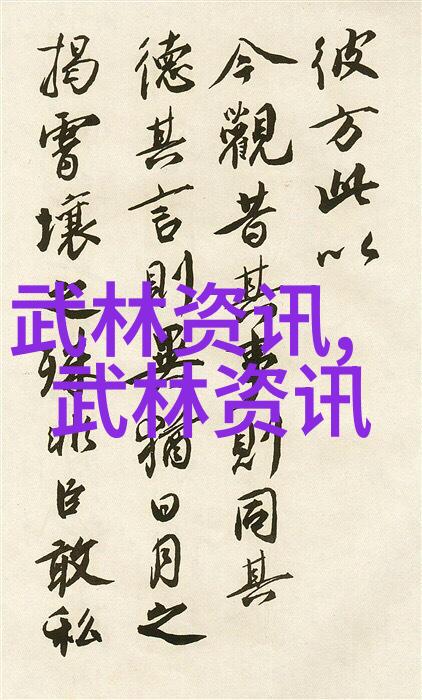 彼方此以
今觀昔其則同其
德其言則異猶日月之
揭霄壤之殊非臣敢私
武林资讯,
武林资讯